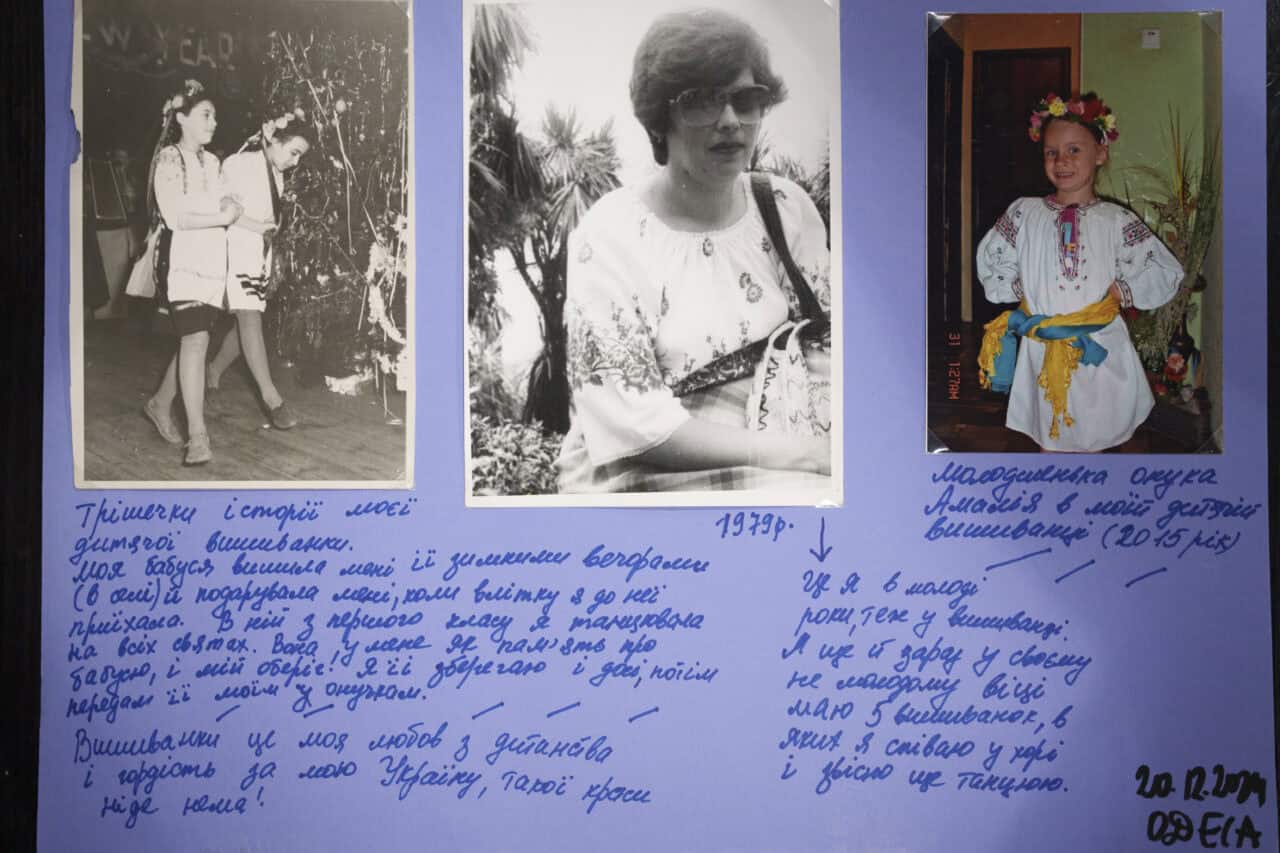 W YEAR
31 1:27AM
Трішечки історії моєї
дитячої вишиванки.
Моя бабуся вишила мені її зимними вечорами
(в селі) й подарувала мені, коли влітку я до неї
приїхала. В ній з першого класу я танцювала
на всіх святах. Вона у мене як пам'ять про
бабусю, і мій оберіг! Я її зберегаю і досі, потім
передам її моїм онучкам.
Вишиванки це моя любов з дітинства
і гордість за мою Україну, такої краси
ніде нема!
1979р.
Це Я в молоді
роки, теж у вишиванці.
А ще й зараз у своєму
не молодому віці
маю 5 вишиванок, в
яких я співаю у хорі
і звісно ще танцюю.
молодшенька онука
Амалія в моїй дитячій
вишиванці (2015 рік)
20.12.2024
ОДЕСА